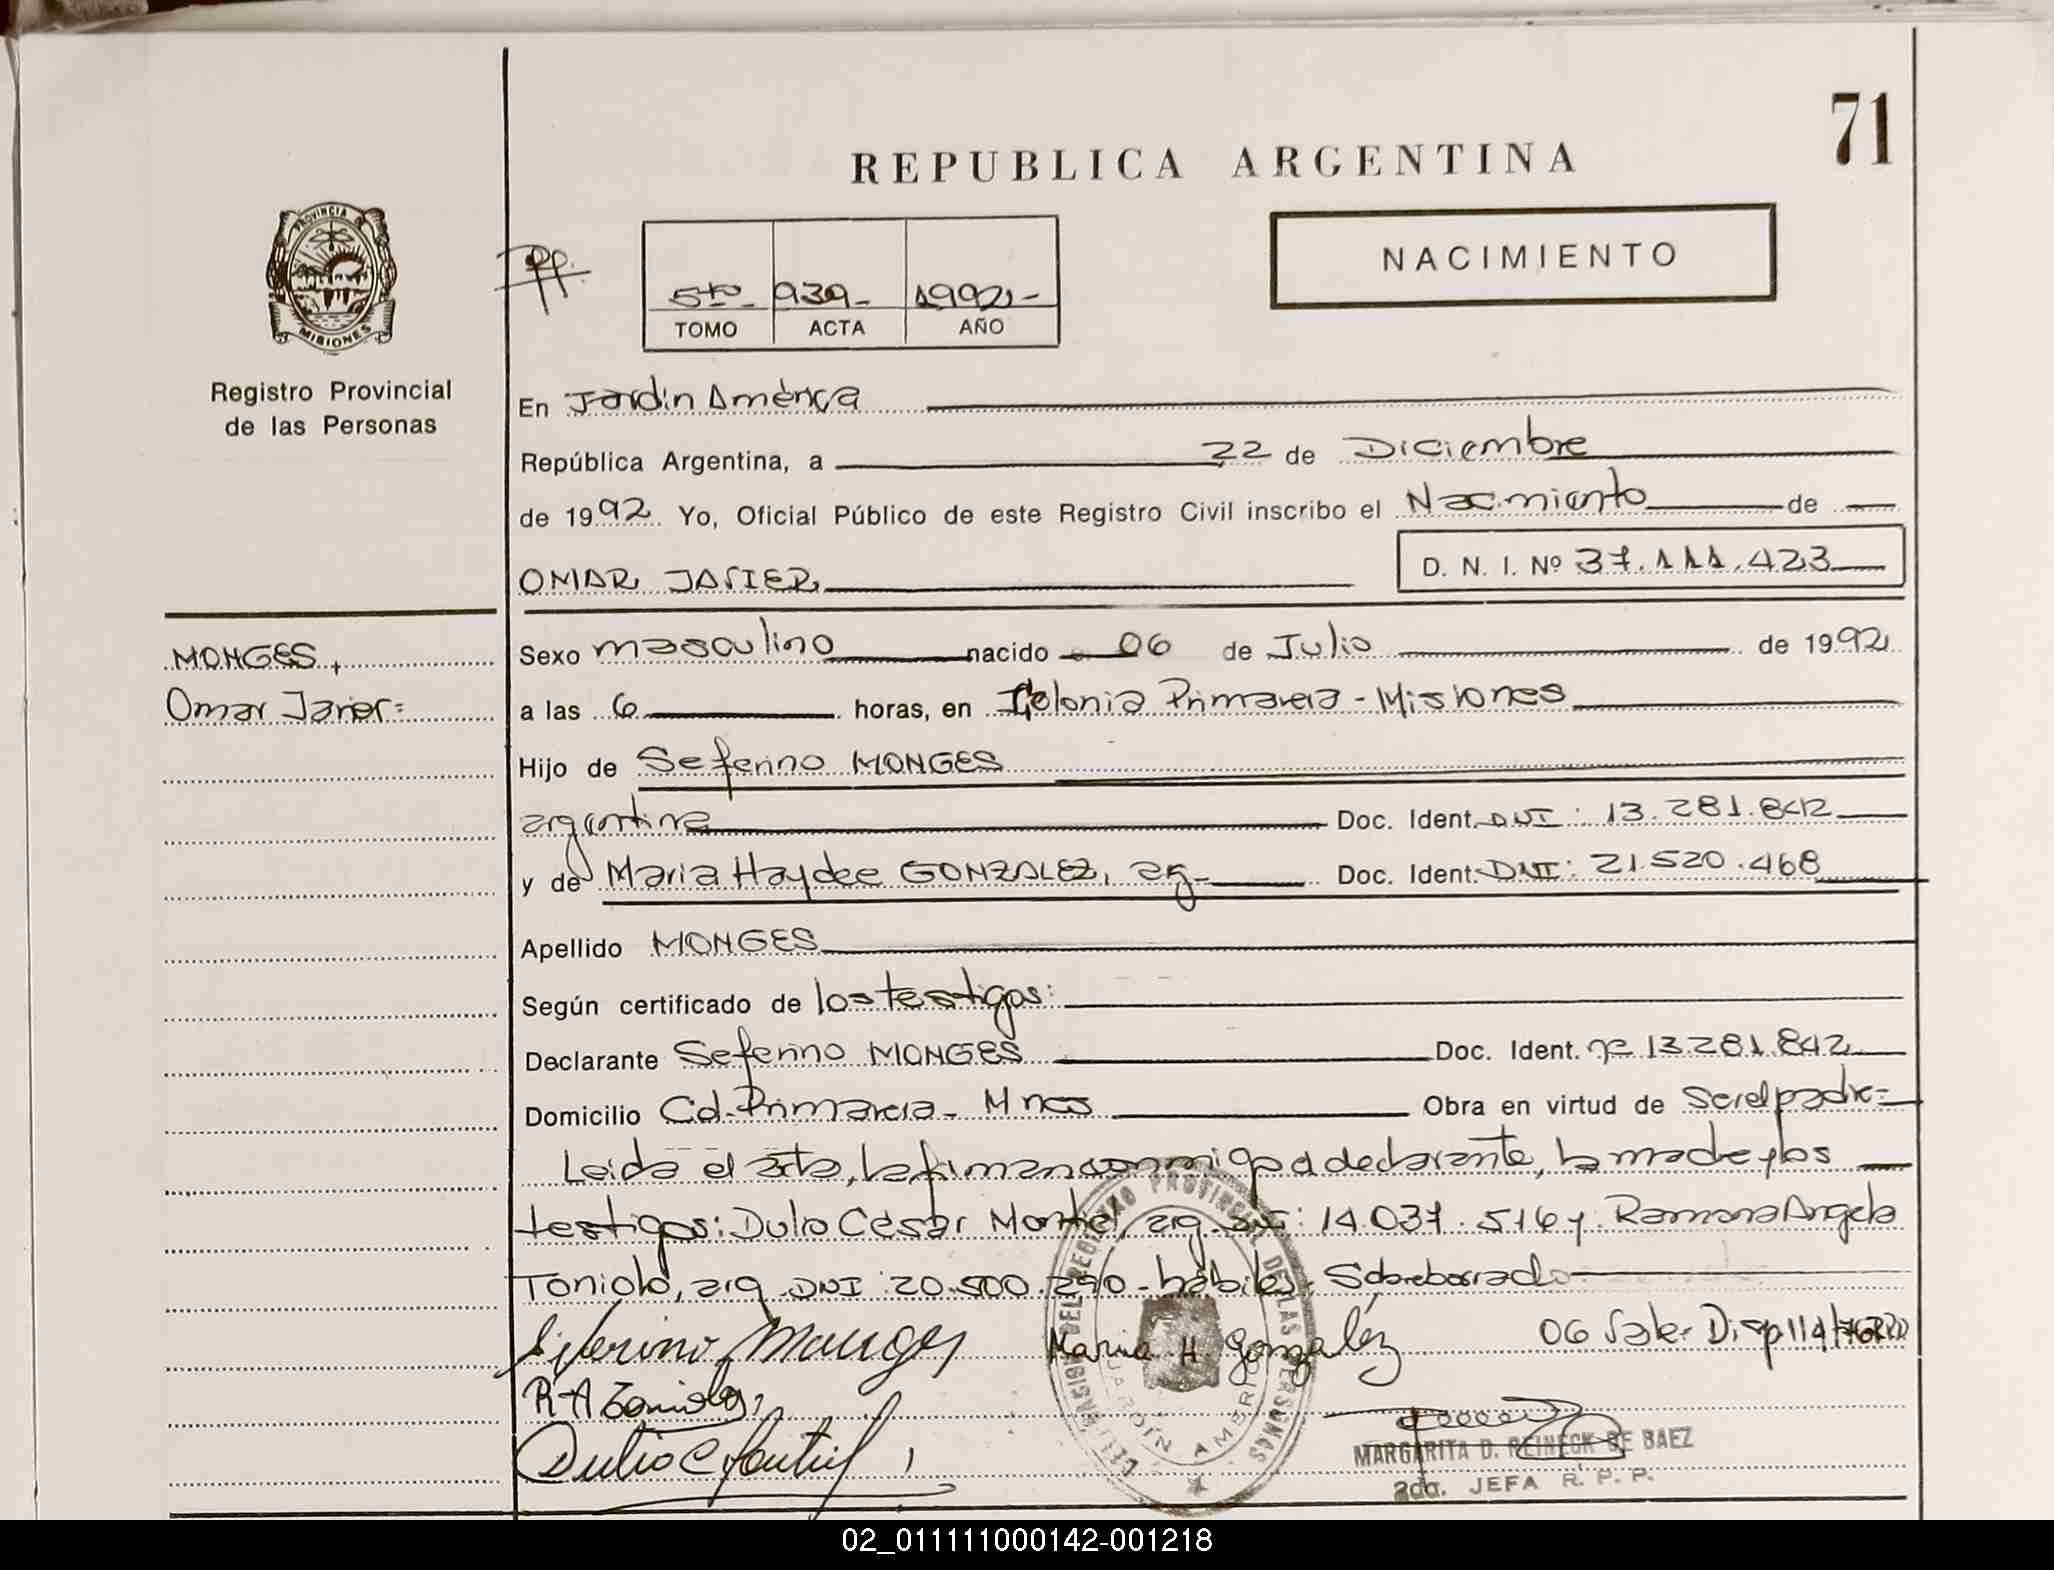 71
REPUBLICA ARGENTINA
NACIMIENTO
PROVINCIA
MISIONES
Registro Provincial
de las Personas
5to 939- 1992,-
TOMO ACTA AÑO
En Jardin América
República Argentina, a 22 de Diciembre
de 1992. Yo, Oficial Público de este Registro Civil inscribo el Nacimiento de
OMAR JAVIER D. N. I. Nº 37.111.423
MONGES,
Omar Javier=
Sexo masculino nacido 06 de Julio de 1992
a las 6 horas, en Colonia Primavera - Misiones
Hijo de Seferino MONGES
argentina Doc. Ident. DNI: 13.281.842
y de Maria Haydee GONZALEZ, arg- Doc. Ident. DNI: 21.520.468
Apellido MONGES
Según certificado de los testigos:
Declarante Seferino MONGES Doc. Ident. 13.281.842
Domicilio Col. Primavera - Mnes Obra en virtud de ser el padre=
Leida el acta, la firman conmigo el declarante, la madre y los
testigos: Dulio César Montiel, arg. 14.037.516 y Ramona Angela
Toniolo, arg. DNI: 20.500.290 - hábiles. Sobreborrado
06 Vale. Disp 114/76 RPP
Maria H Gonzalez
MARGARITA D. REINECK DE BAEZ
2da. JEFA R. P. P.
DELEGACION DEL REGISTRO PROVINCIAL DE LAS PERSONAS
JARDIN AMERICA
02_011111000142-001218